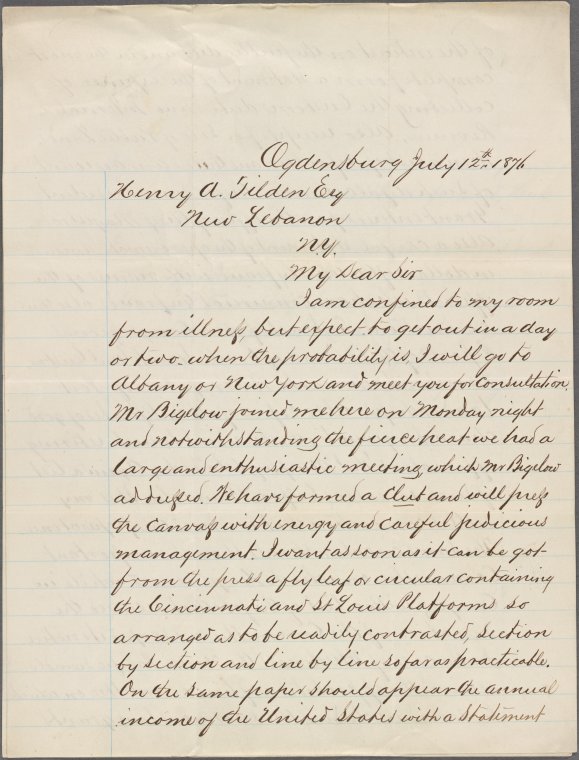 Ogdensburg July 12th 1876
Henry A. Tilden Esq
New Lebanon
N.Y.
My Dear Sir
I am confined to my room
from illness, but expect to get out in a day
or two. when the probability is, I will go to
Albany or New York and meet you for consultation.
Mr Bigelow joined me here on Monday night
and notwithstanding the fierce heat we had a
large and enthusiastic meeting, which Mr Bigelow
addressed. We have formed a Club and will press
the canvass with energy and careful judicious
management. I want as soon as it can be got
from the press a fly leaf or circular containing
the Cincinnati and St Louis Platforms so
arranged as to be readily contrasted, section
by section and line by line so far as practicable.
On the same paper should appear the annual
income of the United States with a Statement